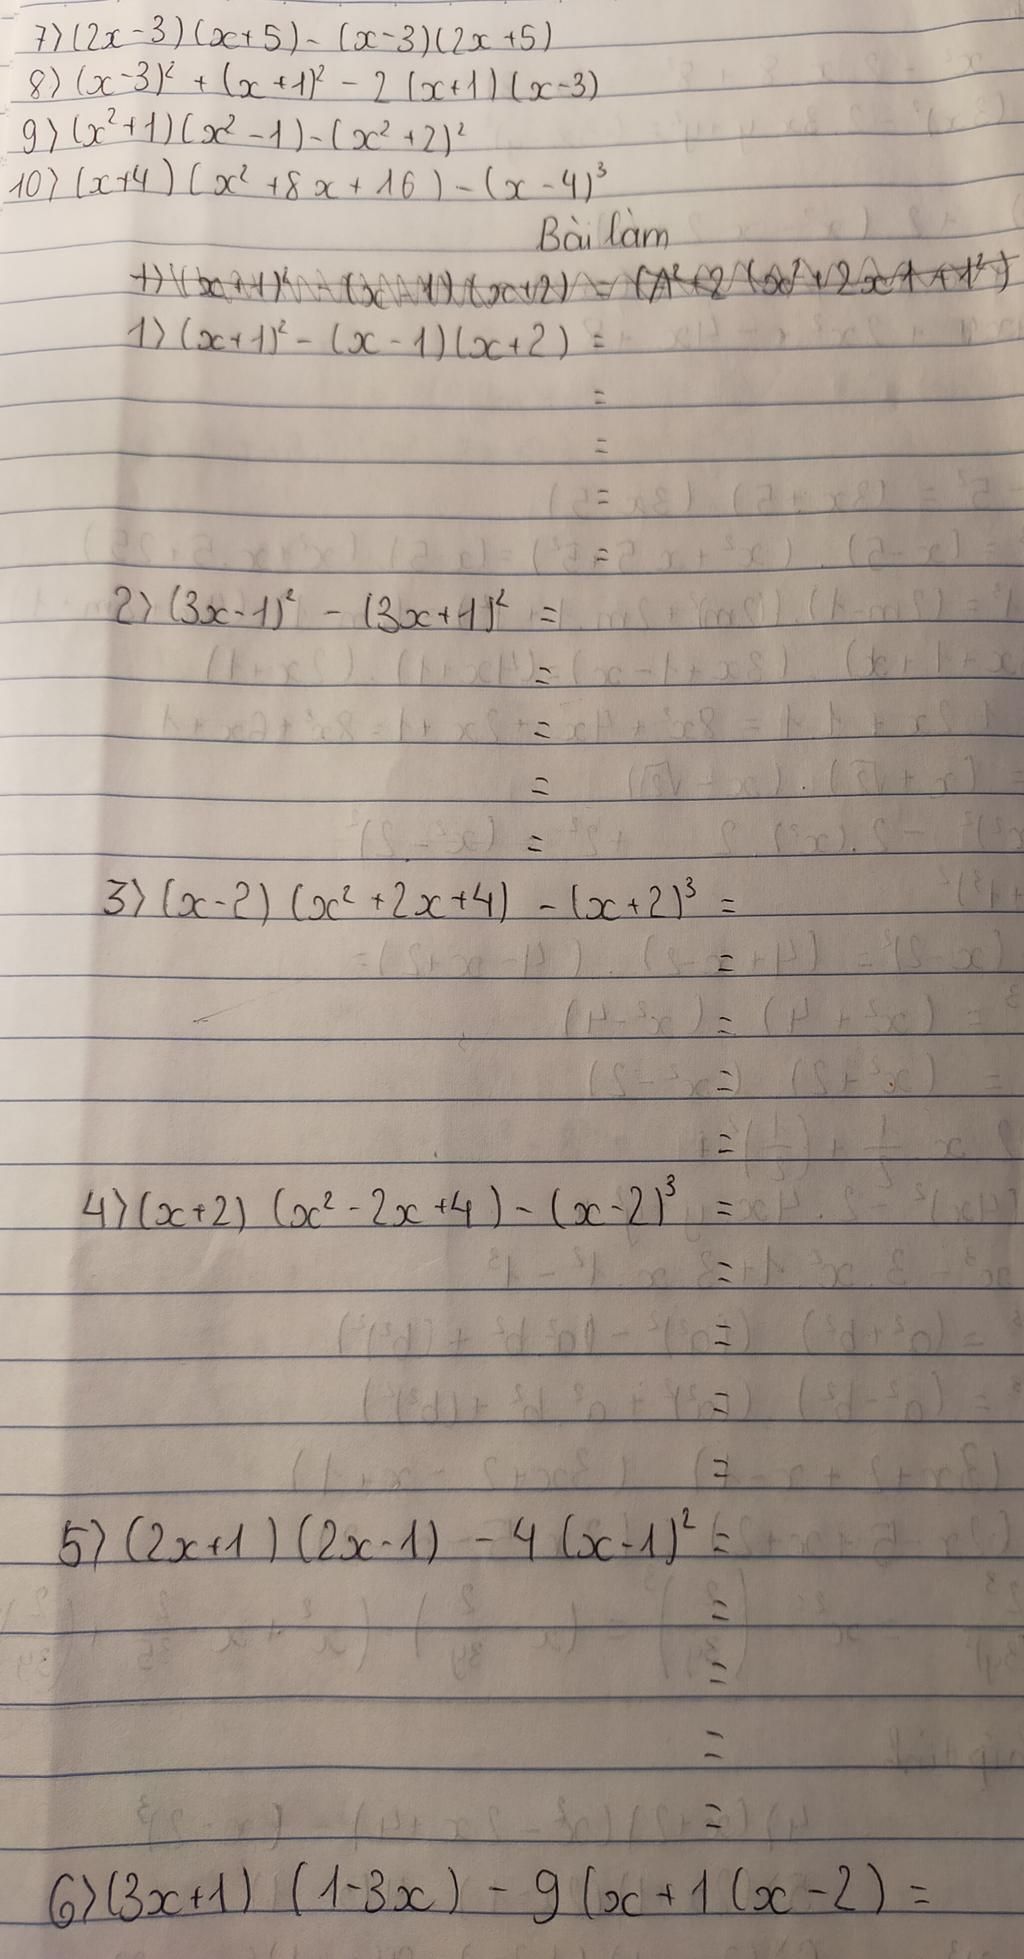 7) (2x-3)(x+5) - (x-3)(2x+5)
8) (x-3)² + (x+1)² - 2 (x+1) (x-3)
9) (x²+1)(x²-1)-(x²+2)²
10) (x+4) (x²+8x+16) - (x-4)³
Bài làm
1) (x+1)² - (x-1)(x+2) =
=
=
=
=
2) (3x-1)² - (3x+1)² =
=
=
=
=
3) (x-2) (x²+2x+4) - (x+2)³ =
=
=
=
=
4) (x+2) (x²-2x+4) - (x-2)³ =
=
=
=
=
5) (2x+1) (2x-1) - 4 (x-1)² =
=
=
=
=
6) (3x+1) (1-3x) - 9 (x+1 (x-2) =